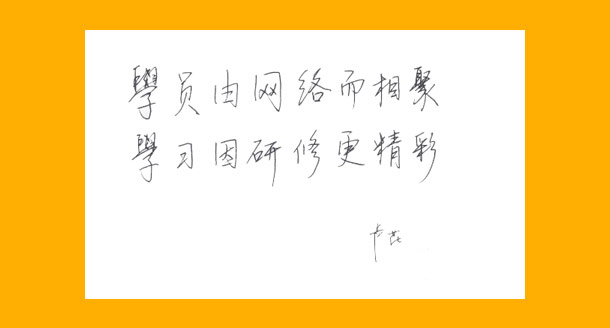 學员由网络而相聚
學习因研修更精彩